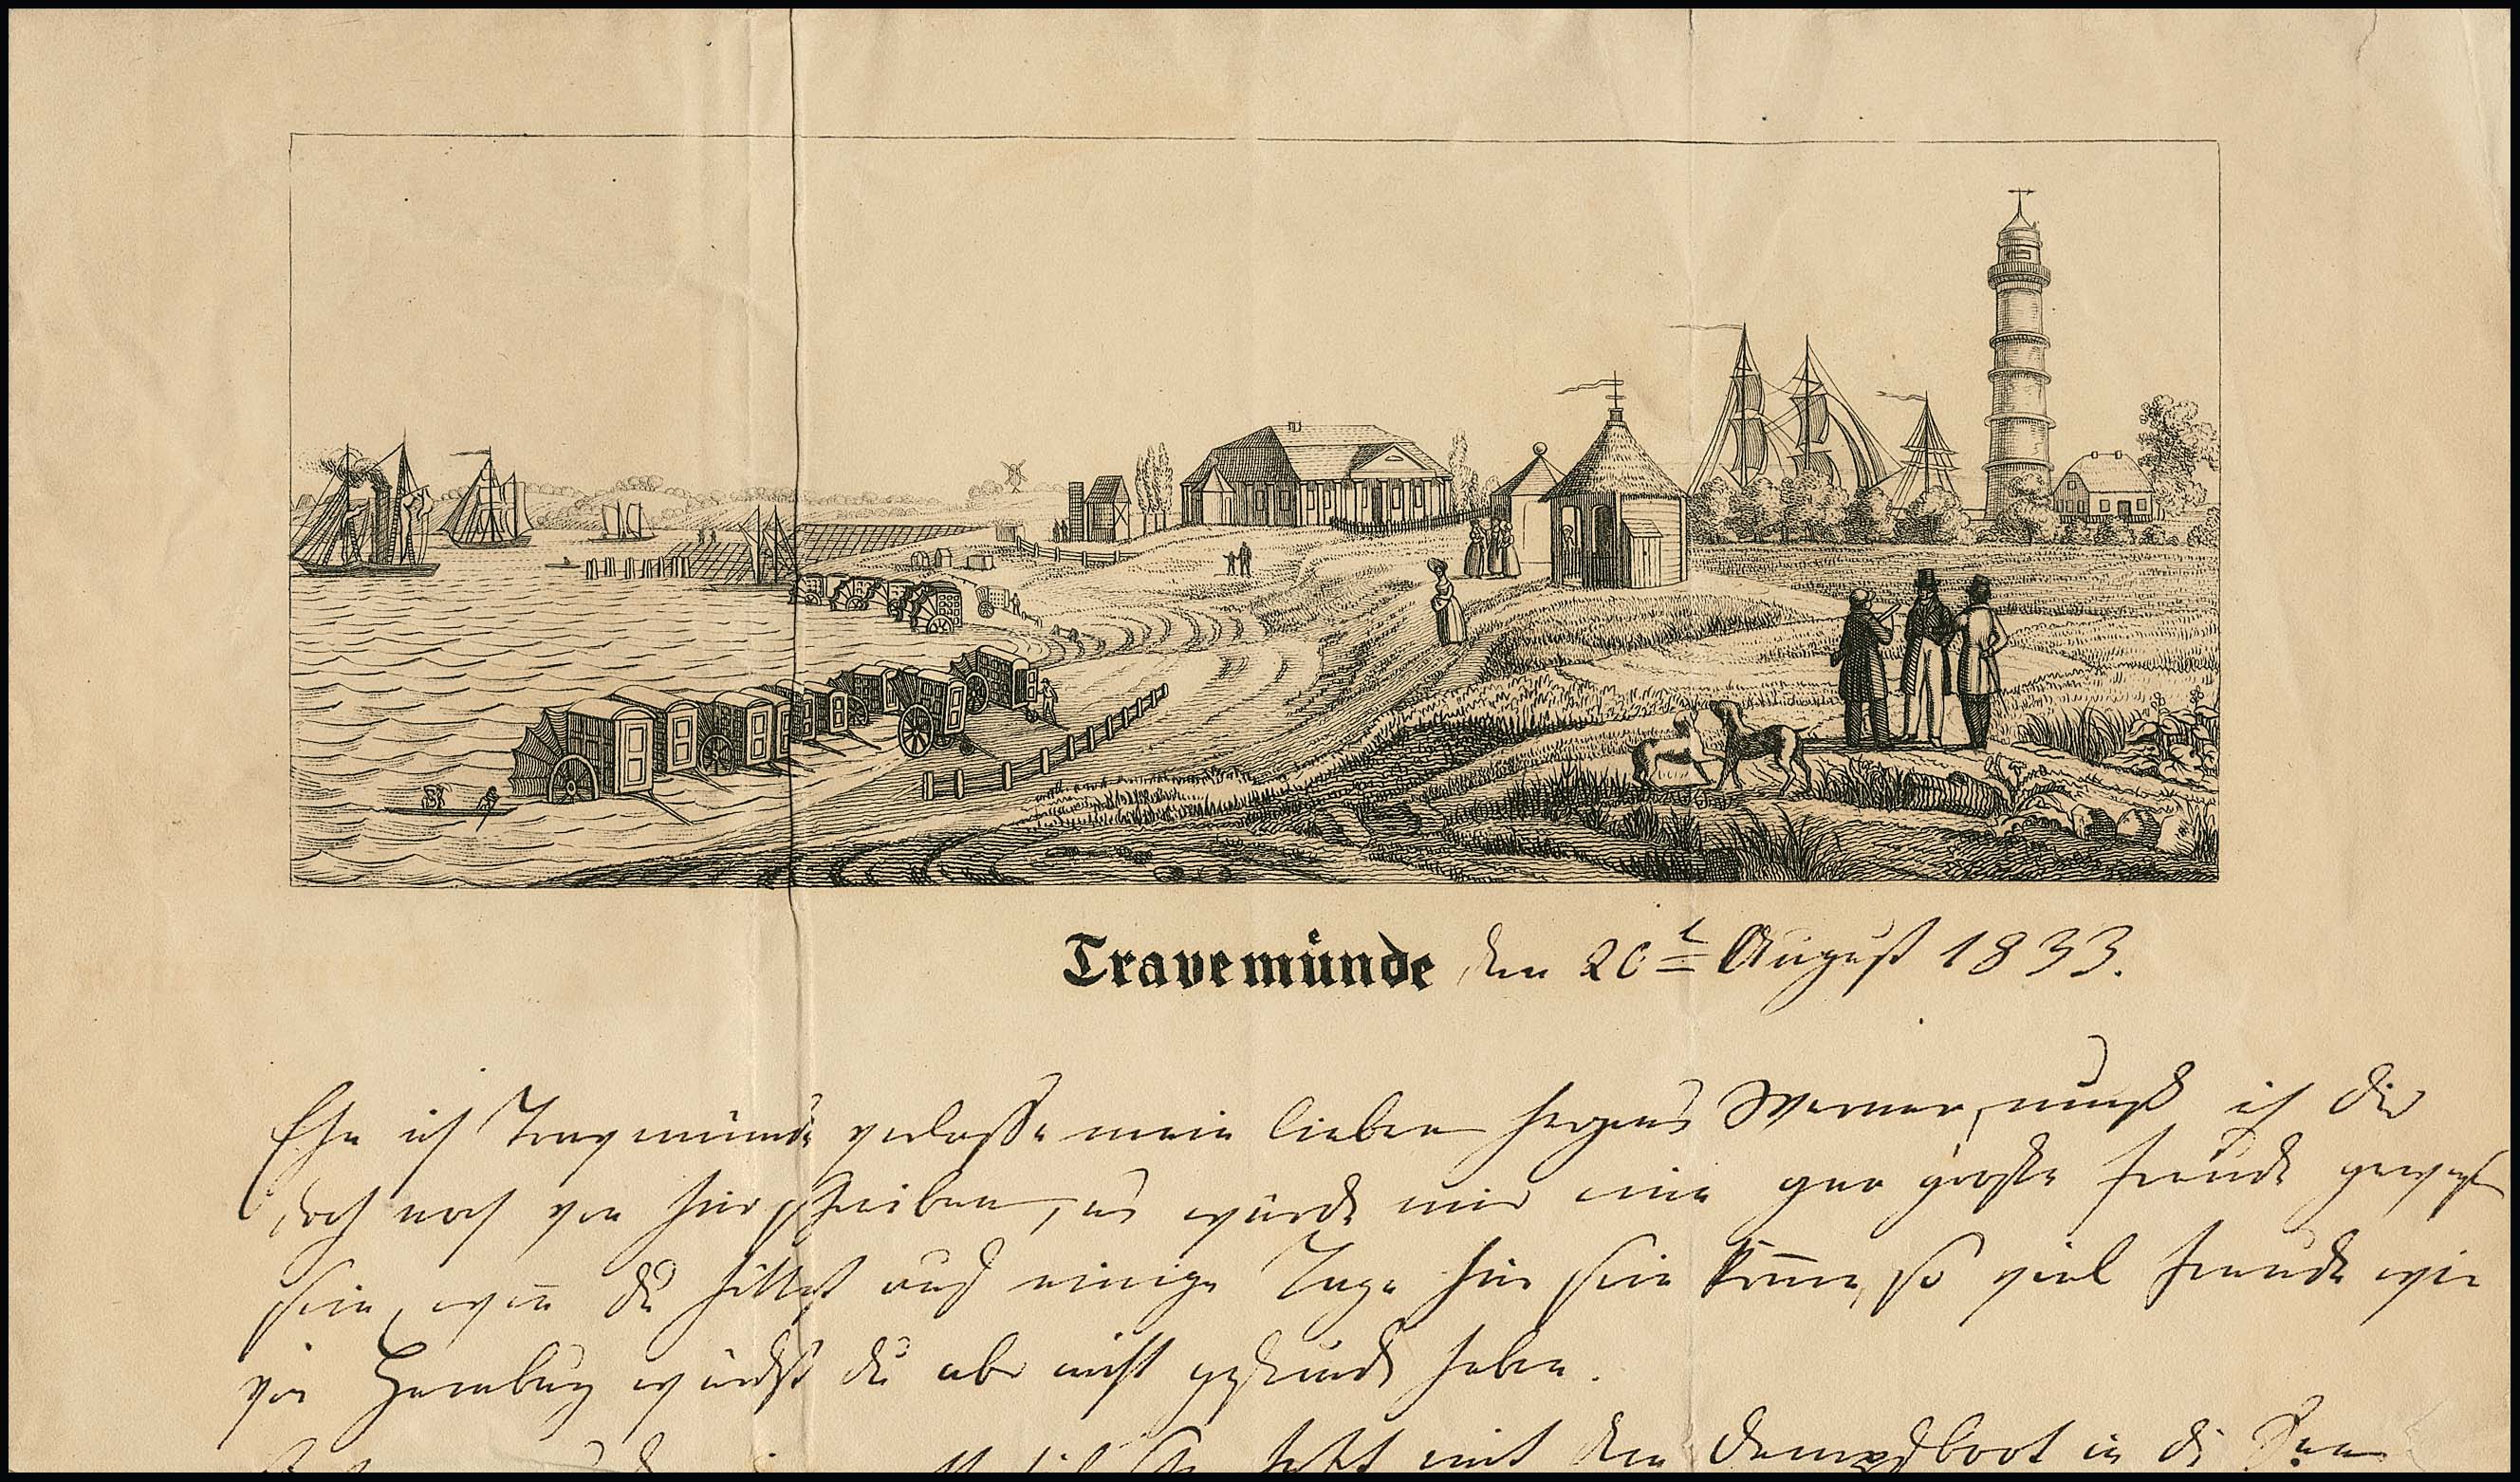 Travemünde den 20t August 1833.
Ehe ich Travemünde verlasse mein lieber Werner, muß ich dir
doch noch von hier schreiben, es würde mir eine gar große Freude gewesen
sein, wen̄ du hättest auch einige Tage hier sein kön̄en, so viel Freude wie
in Hamburg würdest du aber nicht gehabt haben.
mit dem Dampfboot in die See